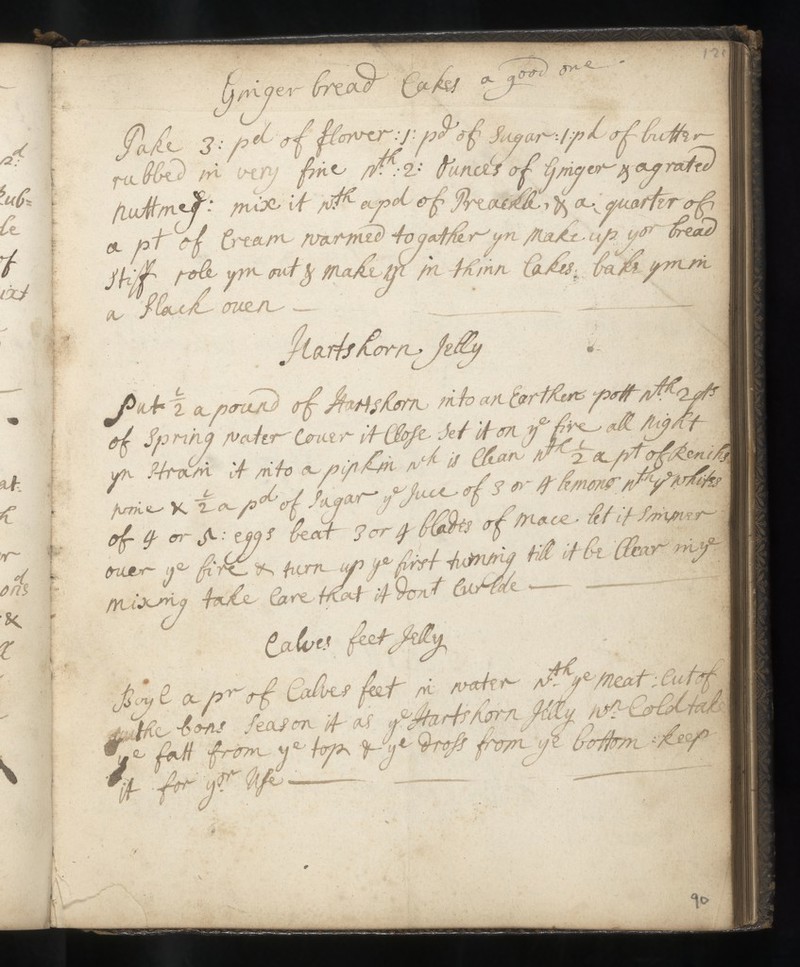 121
Ginger bread Cakes a good one
Take 3: pd of flower :1: pd of Sugar :1: pd of butter
rubbed in very fine wth :2: Ounces of Ginger & a grated
nuttmeg: mix it wth a pd of Treackle, & a quarter of
a pt of Cream warmed togather yn make up yor bread
Stiff role ym out & make ym in thinn Cakes, bake ym in
a Slack oven
Hartshorn Jelly
Put ½ a pound of Hartshorn into an Earthen pott wth 2 qts
of Spring water Couer it Close Set it on ye fire all night
yn Strain it into a pipkin wh is Clean wth ½ a pt of Renish
wine & ½ a pd of Sugar ye Juce of 3 or 4 lemons wth ye whites
of 4 or 5: eggs beat 3 or 4 blades of mace let it Simmer
ouer ye fire & turn up ye first
till it be Clear in ye
mixing take Care that it dont Curlde
Calves feet Jelly
Boyl a pr of Calves feet in water wth ye meat: Cut of
the bons Season it as ye Hartshorn Jelly wn Cold take
ye fatt from ye top & ye dross from ye bottom: keep
it for yor Use
90